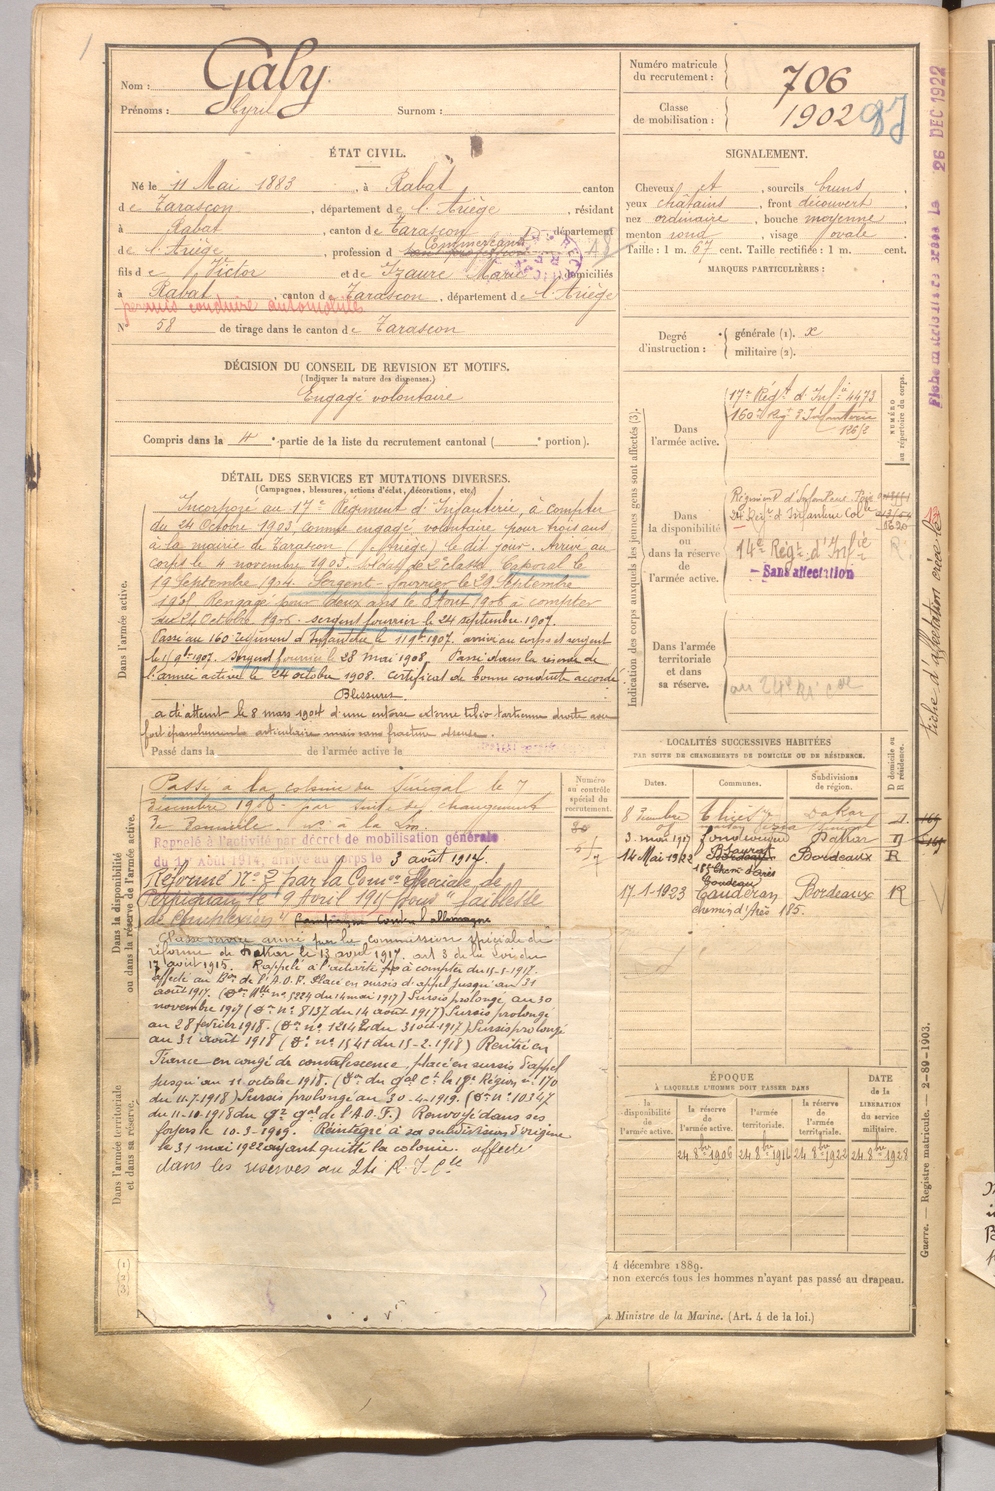 Nom : Galy
Prénoms : Cyril Surnom :
Numéro matricule du recrutement : 706
Classe de mobilisation : 1902
ÉTAT CIVIL.
Né le 11 Mai 1883, à Rabat canton
de Tarascon, département de l'Ariège, résidant
à Rabat, canton de Tarascon, département
de l'Ariège, profession de Commerçant
fils de Victor et de Izaure Marie domiciliés
à Rabat canton de Tarascon, département de l'Ariège
permis conduire automobiles
N° 58 de tirage dans le canton de Tarascon
DÉCISION DU CONSEIL DE REVISION ET MOTIFS.
(Indiquer la nature des dispenses.)
Engagé volontaire
Compris dans la 4e partie de la liste du recrutement cantonal ( e portion).
DÉTAIL DES SERVICES ET MUTATIONS DIVERSES.
(Campagnes, blessures, actions d'éclat, décorations, etc.)
Dans l'armée active.
Incorporé au 17e Régiment d'Infanterie, à compter
du 24 Octobre 1903, comme engagé volontaire pour trois ans
à la mairie de Tarascon (Ariège) le dit jour. Arrivé au
corps le 4 novembre 1903. soldat de 2e classe. Caporal le
19 Septembre 1904. Sergent-fourrier le 29 Septembre
1905. Rengagé pour deux ans le 8 Aout 1906 à compter
du 24 Octobre 1906. sergent fourrier le 24 septembre 1907.
Passé au 160e régiment d'Infanterie le 11 9bre 1907. arrivé au corps et sergent
le 11 9bre 1907. Sergent fourrier le 28 mai 1908. Passé dans la réserve de
l'armée active le 24 octobre 1908. certificat de bonne conduite accordé.
Blessures
a été atteint le 8 mars 1904 d'une entorse externe tibio tarsienne droite avec
fort épanchement articulaire mais sans fracture osseuse.
Passé dans la de l'armée active le
Dans la disponibilité ou dans la réserve de l'armée active.
Passé à la colonie du Sénégal le 7
Décembre 1908 par suite de changement
de Domicile
Rappelé à l'activité par décret de mobilisation générale
du 1er août 1914, arrivé au corps le 3 août 1914.
Réformé N° 2 par la Comon Spéciale de
Perpignan le 9 Avril 1915 pour "faiblesse
Campagne contre l'allemagne
Classé service armé par la commission spéciale de
réforme de Dakar le 13 avril 1917. art 3 de la loi du
17 août 1915. Rappelé à l'activité à compter du 15-1-1917.
affecté au Bon de l'A.O.F. Placé en sursis d'appel jusqu'au 31
août 1917. (Don Mlle n° 5224 du 14 mai 1917) Sursis prolongé au 30
novembre 1917 (Don n° 8137 du 14 août 1917) Sursis prolongé
au 28 février 1918. (Don n° 12142 du 31 oct 1917) Sursis prolongé
au 31 août 1918 (Don n° 1541 du 15-2-1918) Rentré en
France en congé de convalescence, placé en sursis d'appel
jusqu'au 11 octobre 1918. (Don du gal Ct la 18e Région n° 170
du 11-7-1918) Sursis prolongé au 30-4-1919. (Don n° 10347
du 11-10-1918 du gr gal de l'A.O.F.) Renvoyé dans ses
foyers le 10-3-1919. Réintégré à sa subdivision d'origine
le 31 mai 1922 ayant quitté la colonie. affecté
dans les réserves au 24 R.I.Cle
Dans l'armée territoriale et dans sa réserve.
Numéro au contrôle spécial du recrutement.
SIGNALEMENT.
Cheveux et, sourcils bruns,
yeux châtains, front découvert
nez ordinaire, bouche moyenne
menton rond, visage ovale
Taille : 1 m. 67 cent. Taille rectifiée : 1 m. cent.
MARQUES PARTICULIÈRES :
Degré d'instruction : générale (1). x
militaire (2).
Indication des corps auxquels les jeunes gens sont affectés (3).
NUMÉRO au répertoire du corps.
Dans l'armée active.
17e Régt d'Infie 4473
160e Régt d'Infanterie
Dans la disponibilité ou dans la réserve de l'armée active.
24 Régt d'Infanterie Cole
14e Régt d'Infie
Sans affectation
Dans l'armée territoriale et dans sa réserve.
au 24e RI cal
LOCALITÉS SUCCESSIVES HABITÉES
PAR SUITE DE CHANGEMENTS DE DOMICILE OU DE RÉSIDENCE.
Dates. Communes. Subdivisions de région. D domicile ou R résidence.
8 Dcembre 08 Thiès Dakar D.
3 mai 1917 Dakar D
14 Mai 1922 Bordeaux R
17-1-1923 Caudéran Bordeaux R
chemin d'Arès 185.
ÉPOQUE
À LAQUELLE L'HOMME DOIT PASSER DANS
DATE de la LIBÉRATION du service militaire.
la disponibilité de l'armée active. la réserve de l'armée active. l'armée territoriale. la réserve de l'armée territoriale.
24 8bre 1906 24 8bre 1916 24 8bre 1922 24 8bre 1928
4 décembre 1889.
non exercés tous les hommes n'ayant pas passé au drapeau.
Ministre de la Marine. (Art. 4 de la loi.)
Guerre. — Registre matricule. — 2-89-1903.
Fiche d'affectation créée le
26 DEC 1922